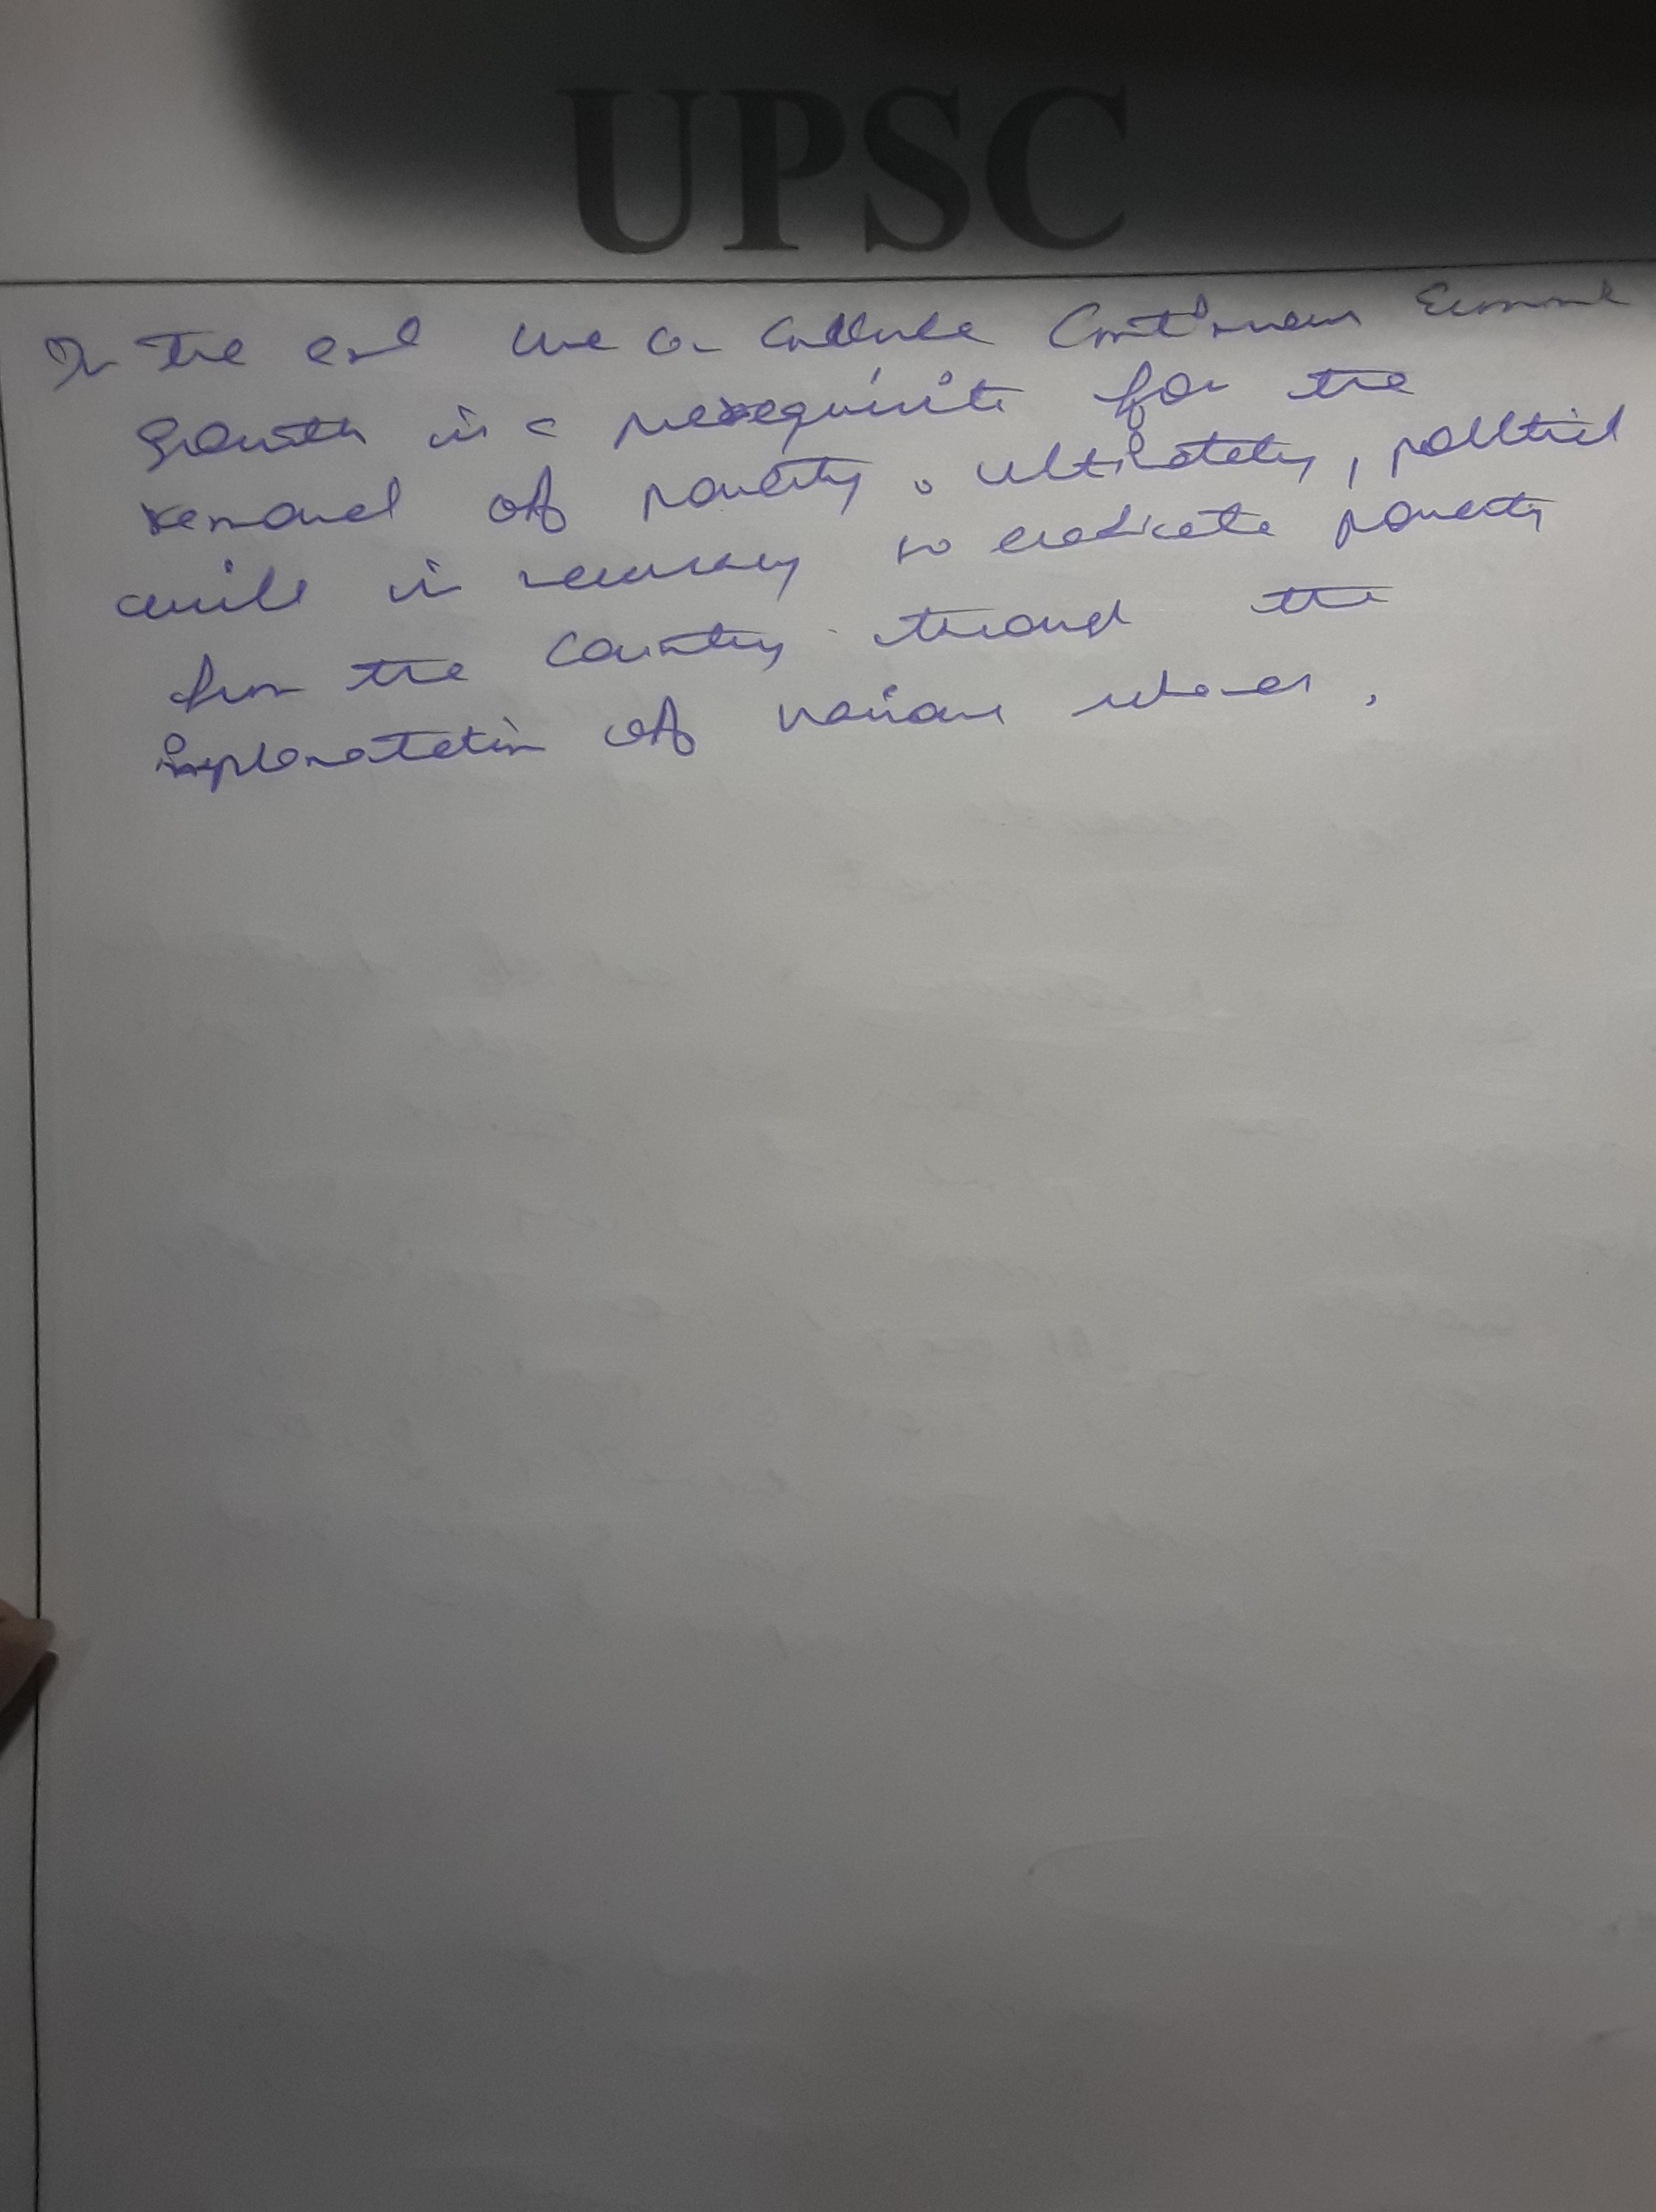 UPSC
In the end we can conclude Continuous Economic
growth is a prerequisite for the
removal of poverty. ultimately, political
will is necessary to eradicate poverty
from the country through the
implementation of various schemes.